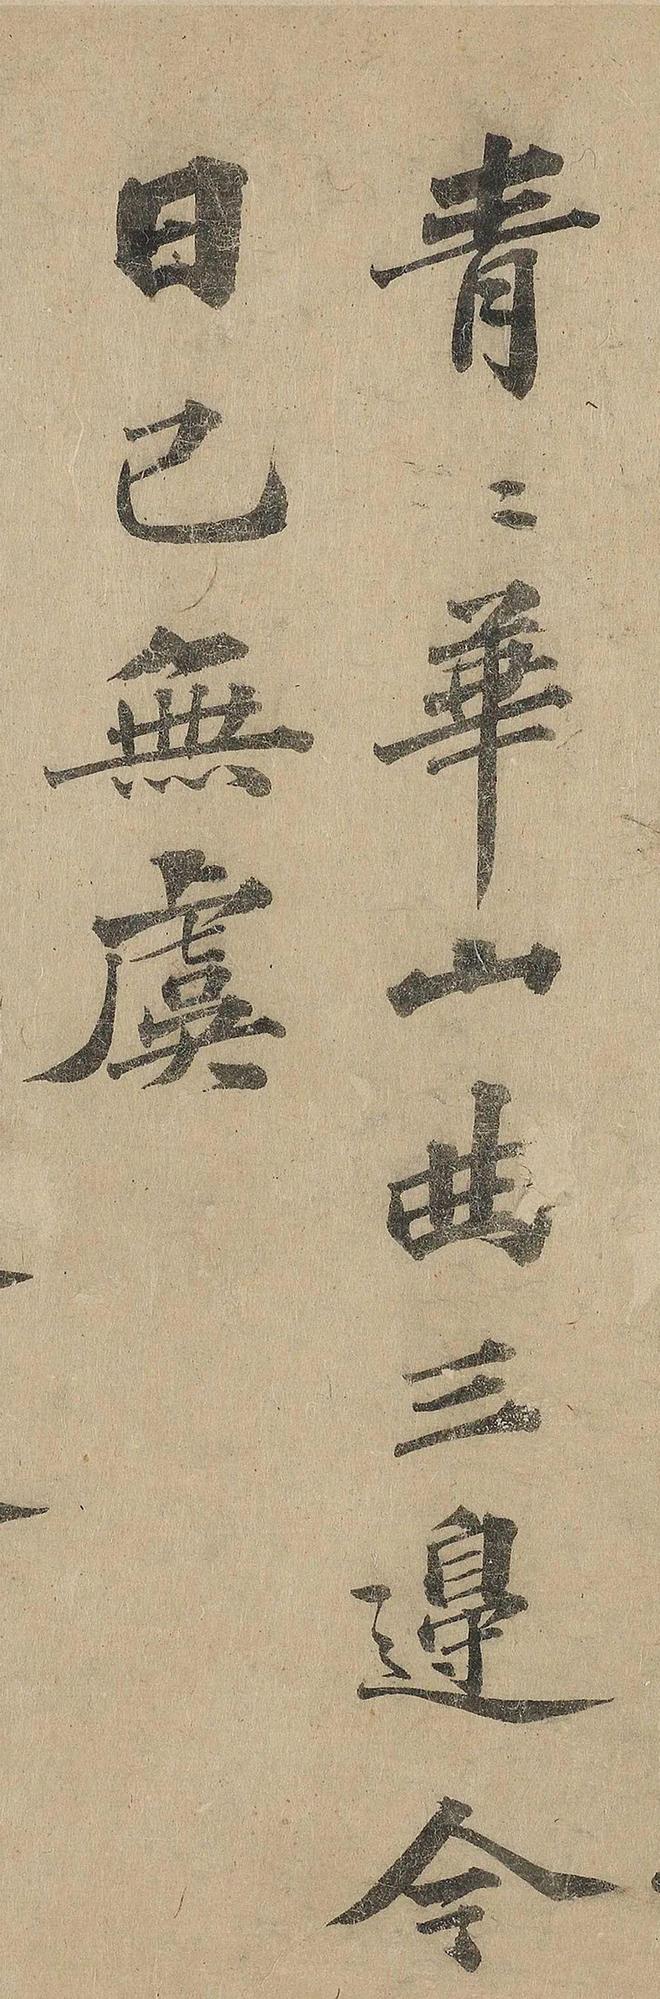 青〻華山曲三邉今
日已無虞